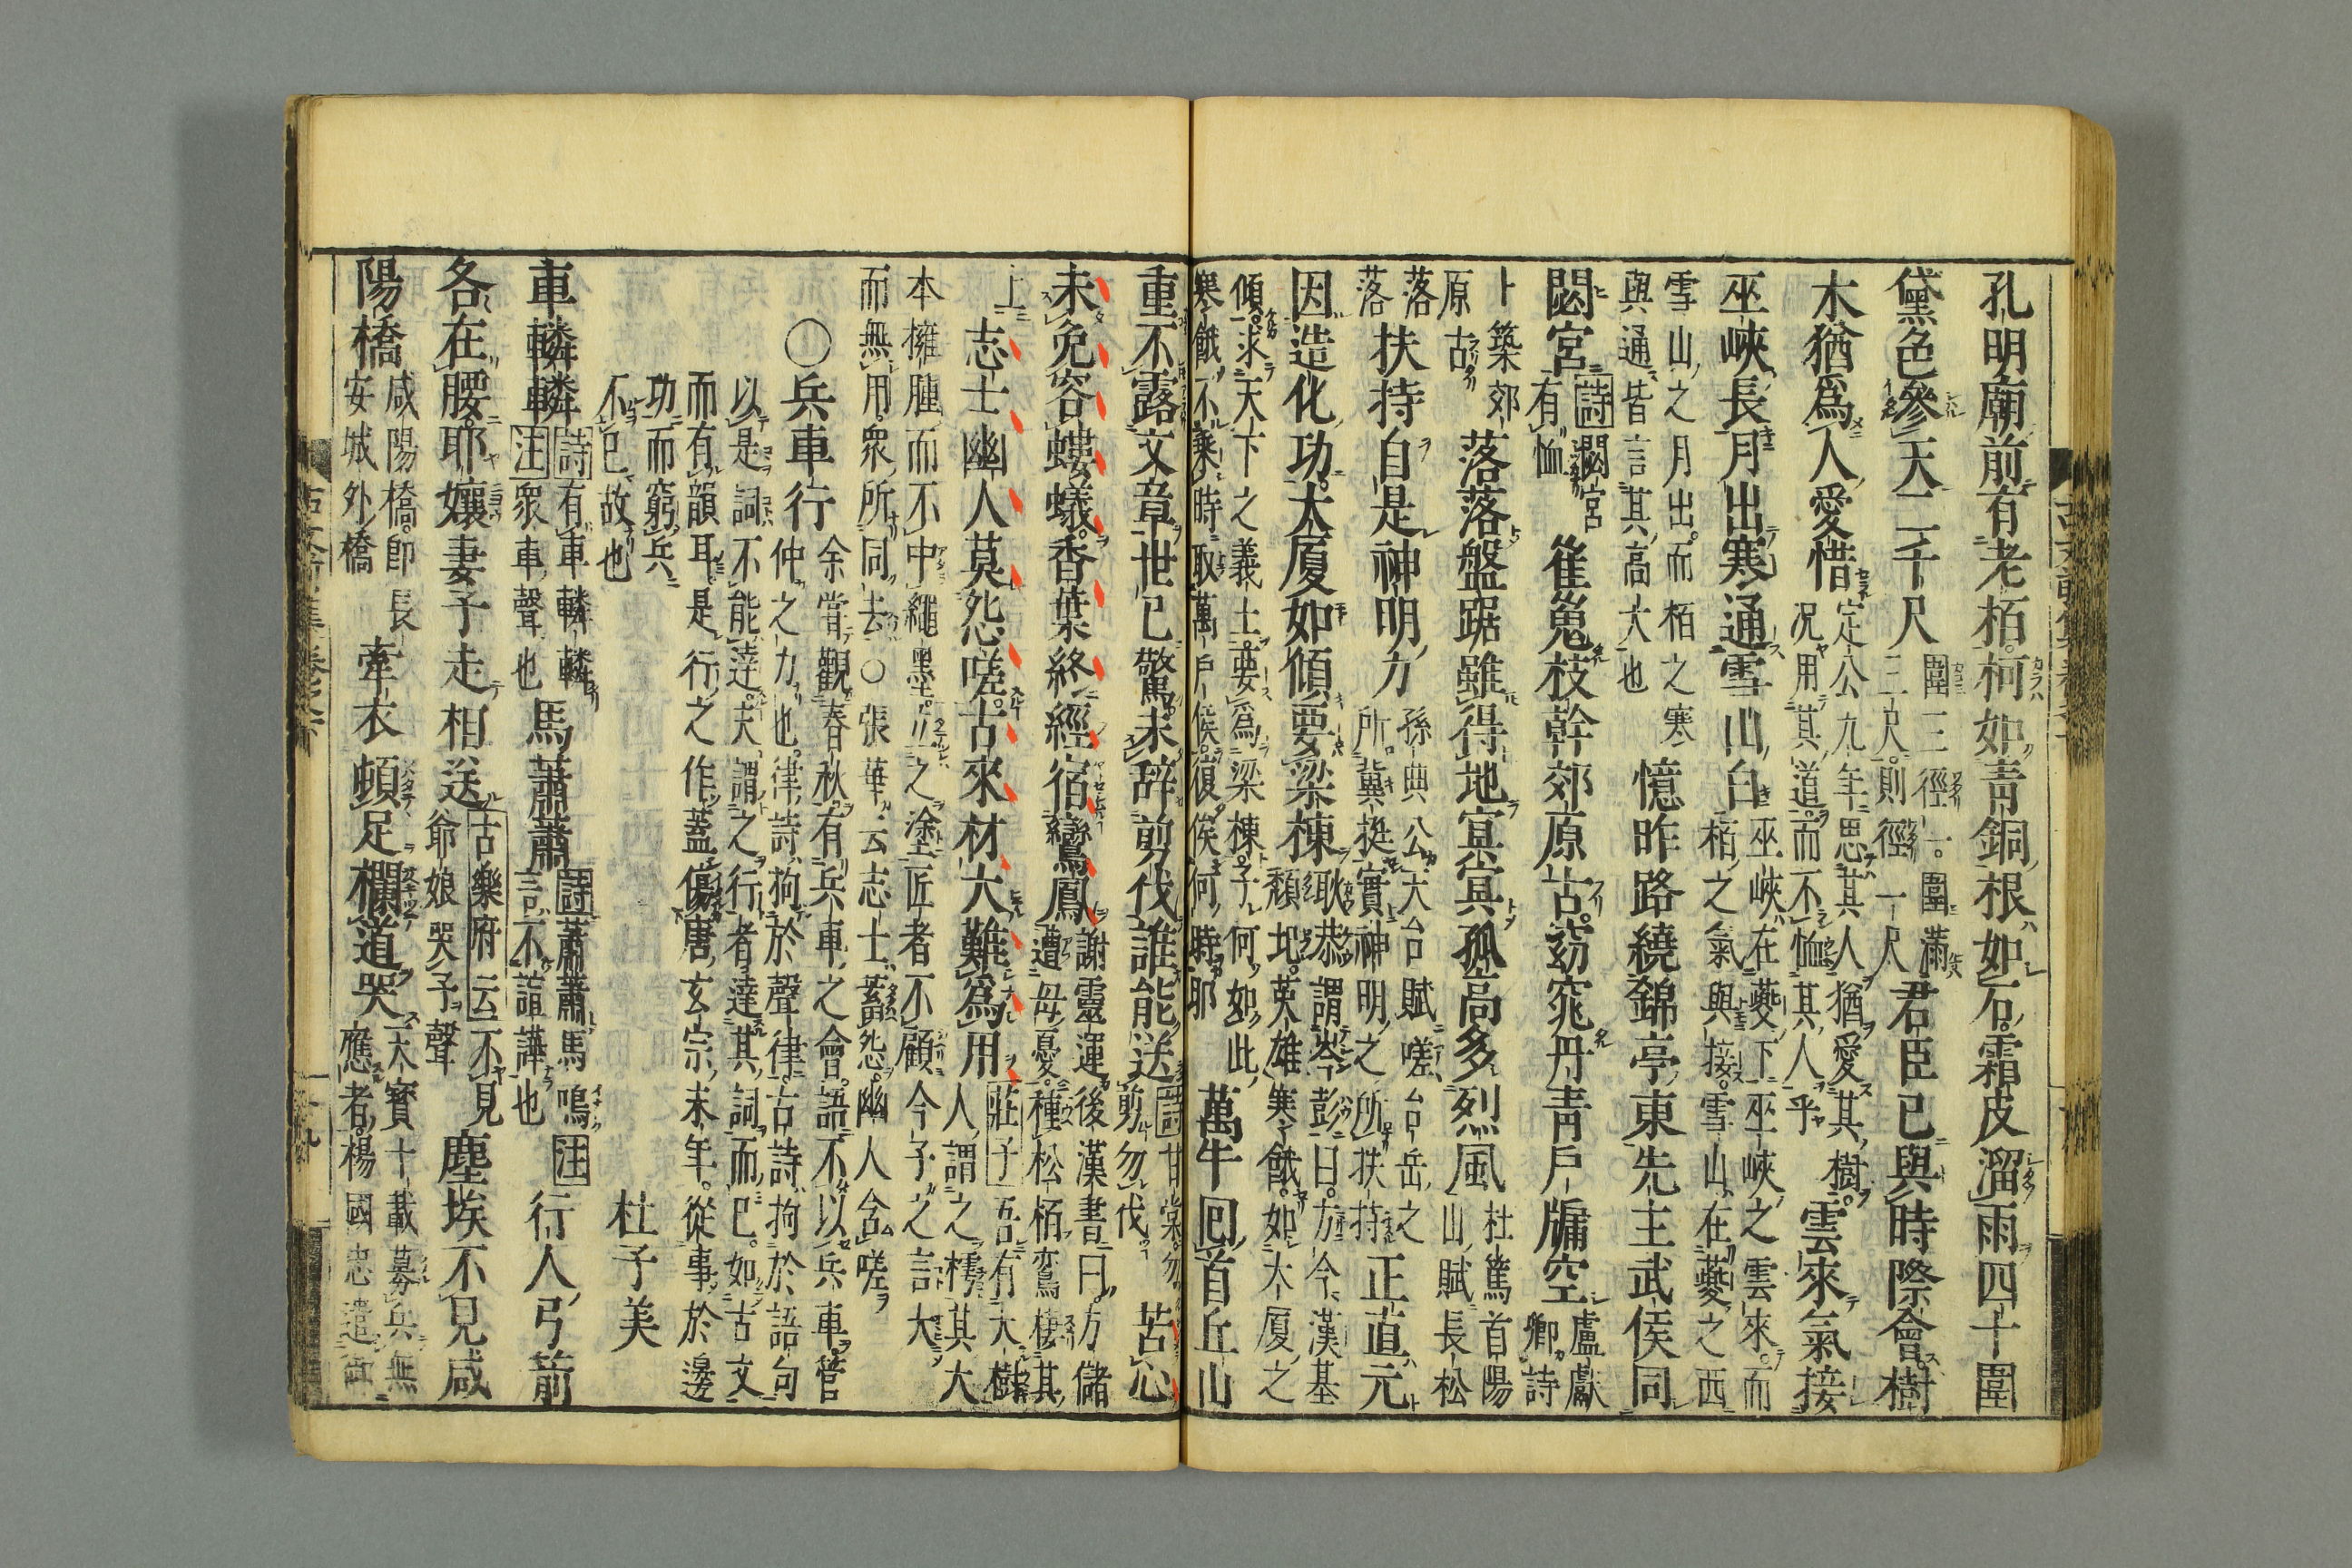 孔明廟前有老栢柯如靑銅根如石霜皮溜雨四十圍
黛色參天二千尺圍三徑一圍滿三尺則徑一尺君臣已與時際會樹
木猶爲人愛惜定公九年思其人猶愛其樹况用其道而不恤其人乎雲來氣接
巫峽長月出寒通雪山白巫峽在夔下巫峽之雲來而栢之氣與接雪山在夔之西
雪山之月出而栢之寒與通皆言其高大也憶昨路繞錦亭東先主武侯同
閟宮詩閟宮有恤崔嵬枝幹郊原古窈窕丹靑戶牖空盧獻卿詩
卜築郊原古落落盤踞雖得地冥冥孤高多烈風杜篤首陽山賦長松
落落扶持自是神明力孫典公天台賦嗟台岳之所冀挺實神明之所扶持正直元
因造化功大厦如傾要梁棟耿恭謂岑彭曰方今漢基頹圯英雄寒餓如大厦之
傾求天下之義士要爲梁棟子何如此寒餓不棄時取萬戶侯復俟何時耶萬牛囘首丘山
重不露文章世已驚未辞剪伐誰能送詩甘棠勿剪勿伐苦心
未免容螻蟻香葉終經宿鸞鳳謝靈運後漢書曰方儲遭母憂種松栢鸞棲其
上志士幽人莫怨嗟古來材大難爲用莊子吾有大樹人謂之樗其大
本擁腫而不中繩墨立之塗匠者不顧今子之言大
而無用衆所同去○張華云志士蓄怨幽人含嗟
○兵車行余嘗觀春秋有兵車之會語不以兵車管仲之力也律詩拘於聲律古詩拘於語句
以是詞不能達夫謂之行者達其詞而已如古文
而有韻耳是行之作蓋傷唐玄宗末年從事於邊
功而窮兵
不已故也杜子美
車轔轔詩有車轔轔注衆車聲也馬蕭蕭詩蕭蕭馬鳴注言不諠譁也行人弓箭
各在腰耶孃妻子走相送古樂府云不見爺娘哭子聲塵埃不見咸
陽橋咸陽橋卽長安城外橋牽衣頓足欄道哭天寶十載募兵無應者楊國忠遣